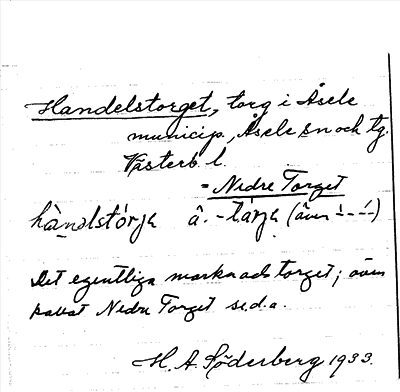 Handelstorget, torg i Åsele
municip., Åsele sn och tg.
Västerb l.
= Nedre Torget
hàndlstórjɛ â. -tàrjɛ (även
Det egentliga marknadstorget; även
kallat Nedre Torget se d.o.
H. A. Söderberg 1933.